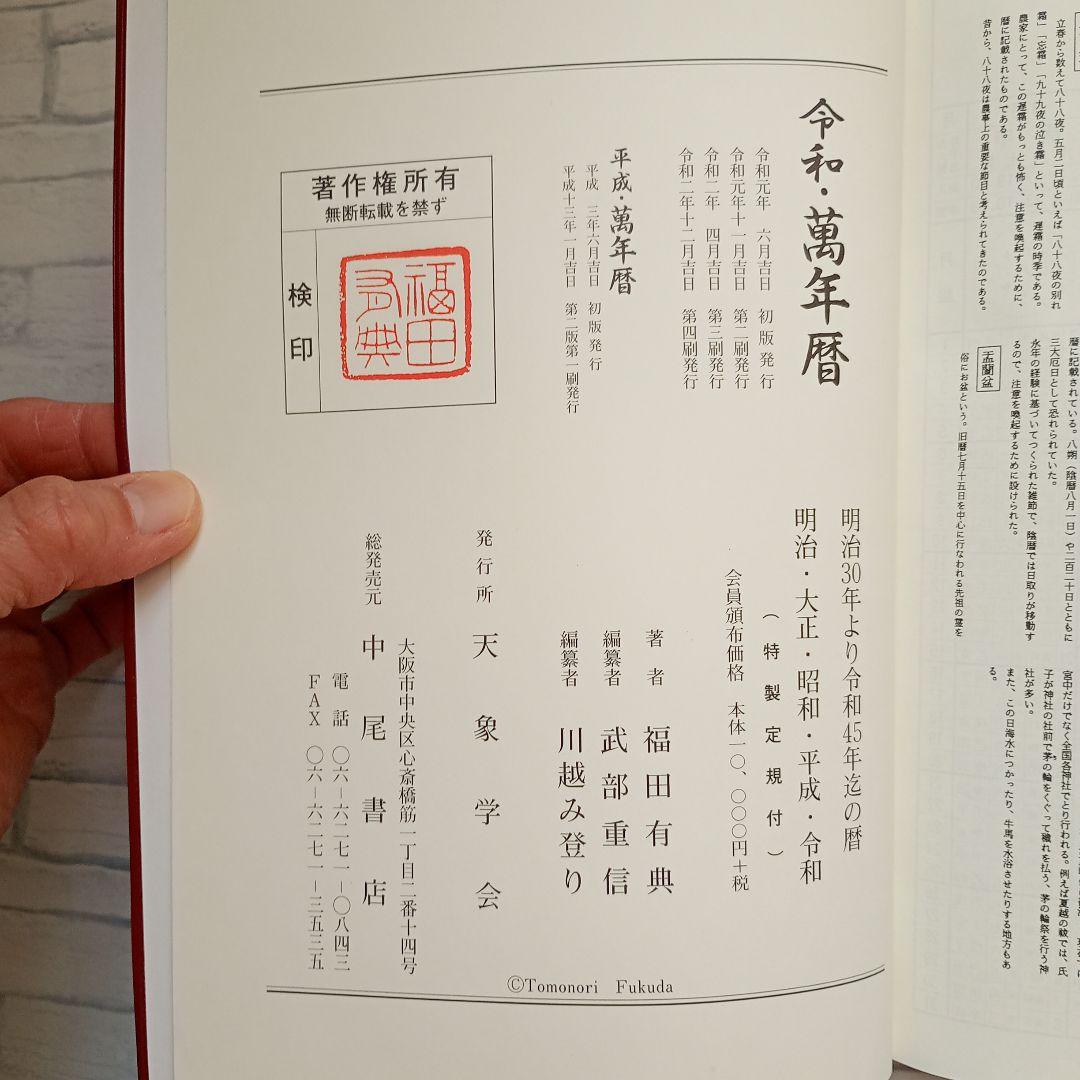 立春から数えて八十八夜。五月二日頃といえば「八十八夜の別れ
霜」「忘霜」「九十九夜の泣き霜」といって、遅霜の時季である。
農家にとって、この遅霜がもっとも怖く、注意を喚起するために、
暦に記載されたものである。
昔から、八十八夜は農事上の重要な節目と考えられてきたのである。
暦に記載されている。八朔（陰暦八月一日）や二百二十日とともに
三大厄日として恐れられていた。
永年の経験に基づいてつくられた雑節で、陰暦では日取りが移動す
るので、注意を喚起するために設けられた。
盂蘭盆
俗にお盆という。旧暦七月十五日を中心に行なわれる先祖の霊を
宮中だけでなく全国各神社でとり行われる。例えば夏越の祓では、氏
子が神社の社前で茅の輪をくぐって穢れを払う、茅の輪祭を行う神
社が多い。
また、この日海水につかったり、牛馬を水浴させたりする地方もあ
る。
令和・萬年暦
令和元年　六月吉日　初版発行
令和元年十一月吉日　第二刷発行
令和二年　四月吉日　第三刷発行
令和二年十二月吉日　第四刷発行
平成・萬年暦
平成　三年六月吉日　初版発行
平成十三年一月吉日　第二版第一刷発行
著作権所有
無断転載を禁ず
検印
福田
有典
明治30年より令和45年迄の暦
明治・大正・昭和・平成・令和
（特製定規付）
会員頒布価格　本体一〇、〇〇〇円＋税
著者　福田有典
編纂者　武部重信
編纂者　川越み登り
発行所　天象学会
大阪市中央区心斎橋筋一丁目二番十四号
総発売元　中尾書店
電話　〇六－六二七一－〇八四三
FAX　〇六－六二七一－三五三五
©Tomonori Fukuda